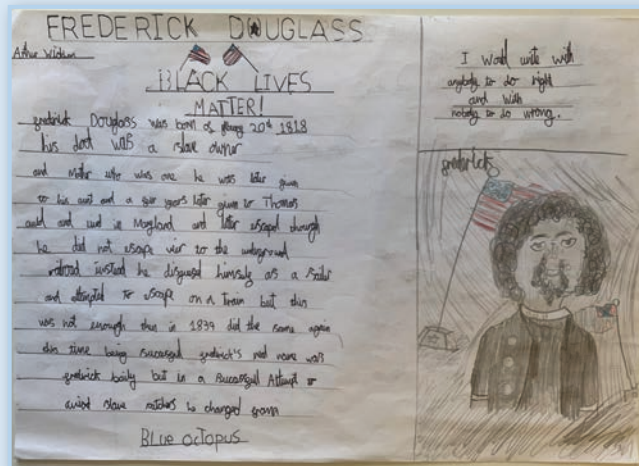 FREDERICK DOUGLASS
BLACK LIVES
MATTER!
fredrick Douglass was born of 20th 1818
his dad was a slave owner
and Mother who was one he was later given
to his aunt and a few years later given to Thomas
auld and lived in Maryland and later escaped though
he did not escape via to the underground
railroad instead he disguised himself as a sailor
and attempted to escape on a train but this
was not enough then in 1839 did the same again
this time being successful fredrick's real name was
fredrick baily but in a successful Attempt
slave catchers he changed
Blue octopus
I would unite with
anybody to do right
and with
nobody to do wrong.
fredrick